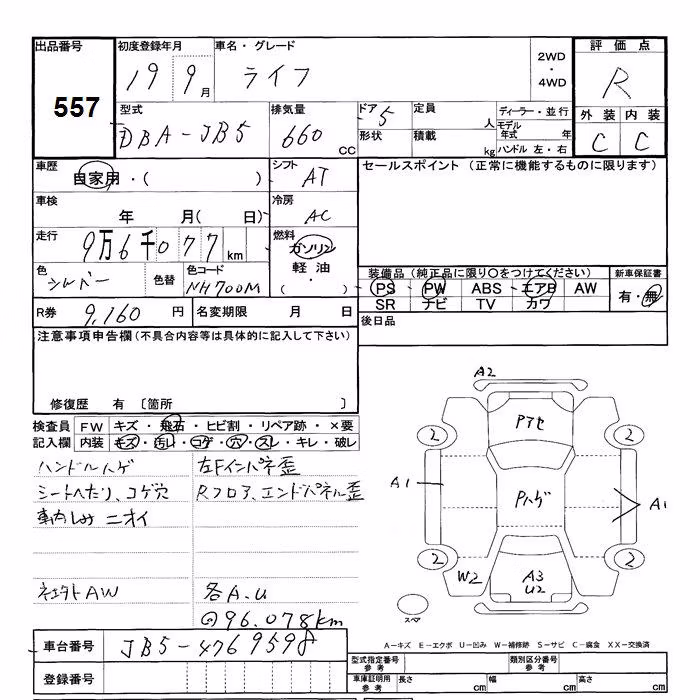 出品番号 初度登録年月 車名・グレード 2WD ・ 4WD 評価点
557 19 9月 ライフ R
型式 排気量 ドア 定員 人 ディーラー・並行 外装 内装
DBA-JB5 660 CC 5 形状 積載 kg モデル年式 年 C C
ハンドル 左・右
車歴 自家用・( ) シフト AT セールスポイント (正常に機能するものに限ります)
車検 年 月( 日) 冷房 AC
走行 9万6千077km 燃料 ガソリン・軽油・( )
色 シルバー 色替 色コード NH700M
装備品(純正品に限り○をつけてください) 新車保証書
PS PW ABS エアB AW 有・無
SR ナビ TV カワ
R券 9,160 円 名変期限 月 日 後日品
注意事項申告欄(不具合内容等は具体的に記入して下さい)
修復歴 有 〔箇所 〕
検査員 FW キズ・飛石・ヒビ割・リペア跡・×要
記入欄 内装 キズ・汚れ・コゲ・穴・スレ・キレ・破レ
ハンドルハゲ 左Fインパネ歪
シートへたり、コゲ穴 Rフロア、エンドパネル歪
車内しみ ニオイ
AW 各A.U
96.078km
A2
Pアセ
2 2
A1 Pハゲ A1
2 2
W2 A3 U2
スペア
車台番号 JB5-4769598
登録番号
A-キズ E-エクボ U-凹み W-補修跡 S-サビ C-腐食 XX-交換済
型式指定番号 参考 類別区分番号 参考
車庫証明用 参考 長さ cm 幅 cm 高さ cm